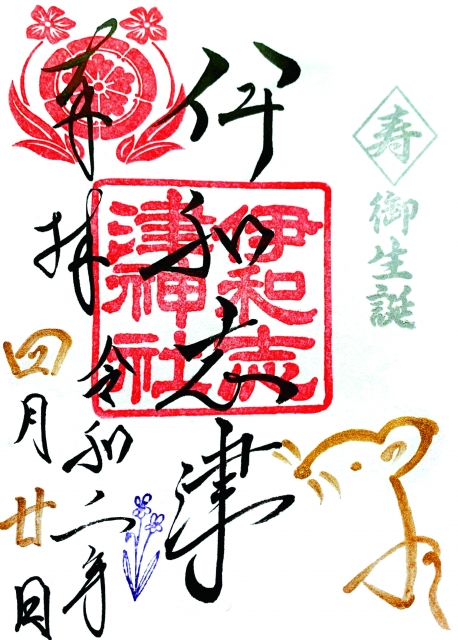 寿
御生誕
伊和志津
伊和志
津神社
奉拝
令和二年
四月廿日